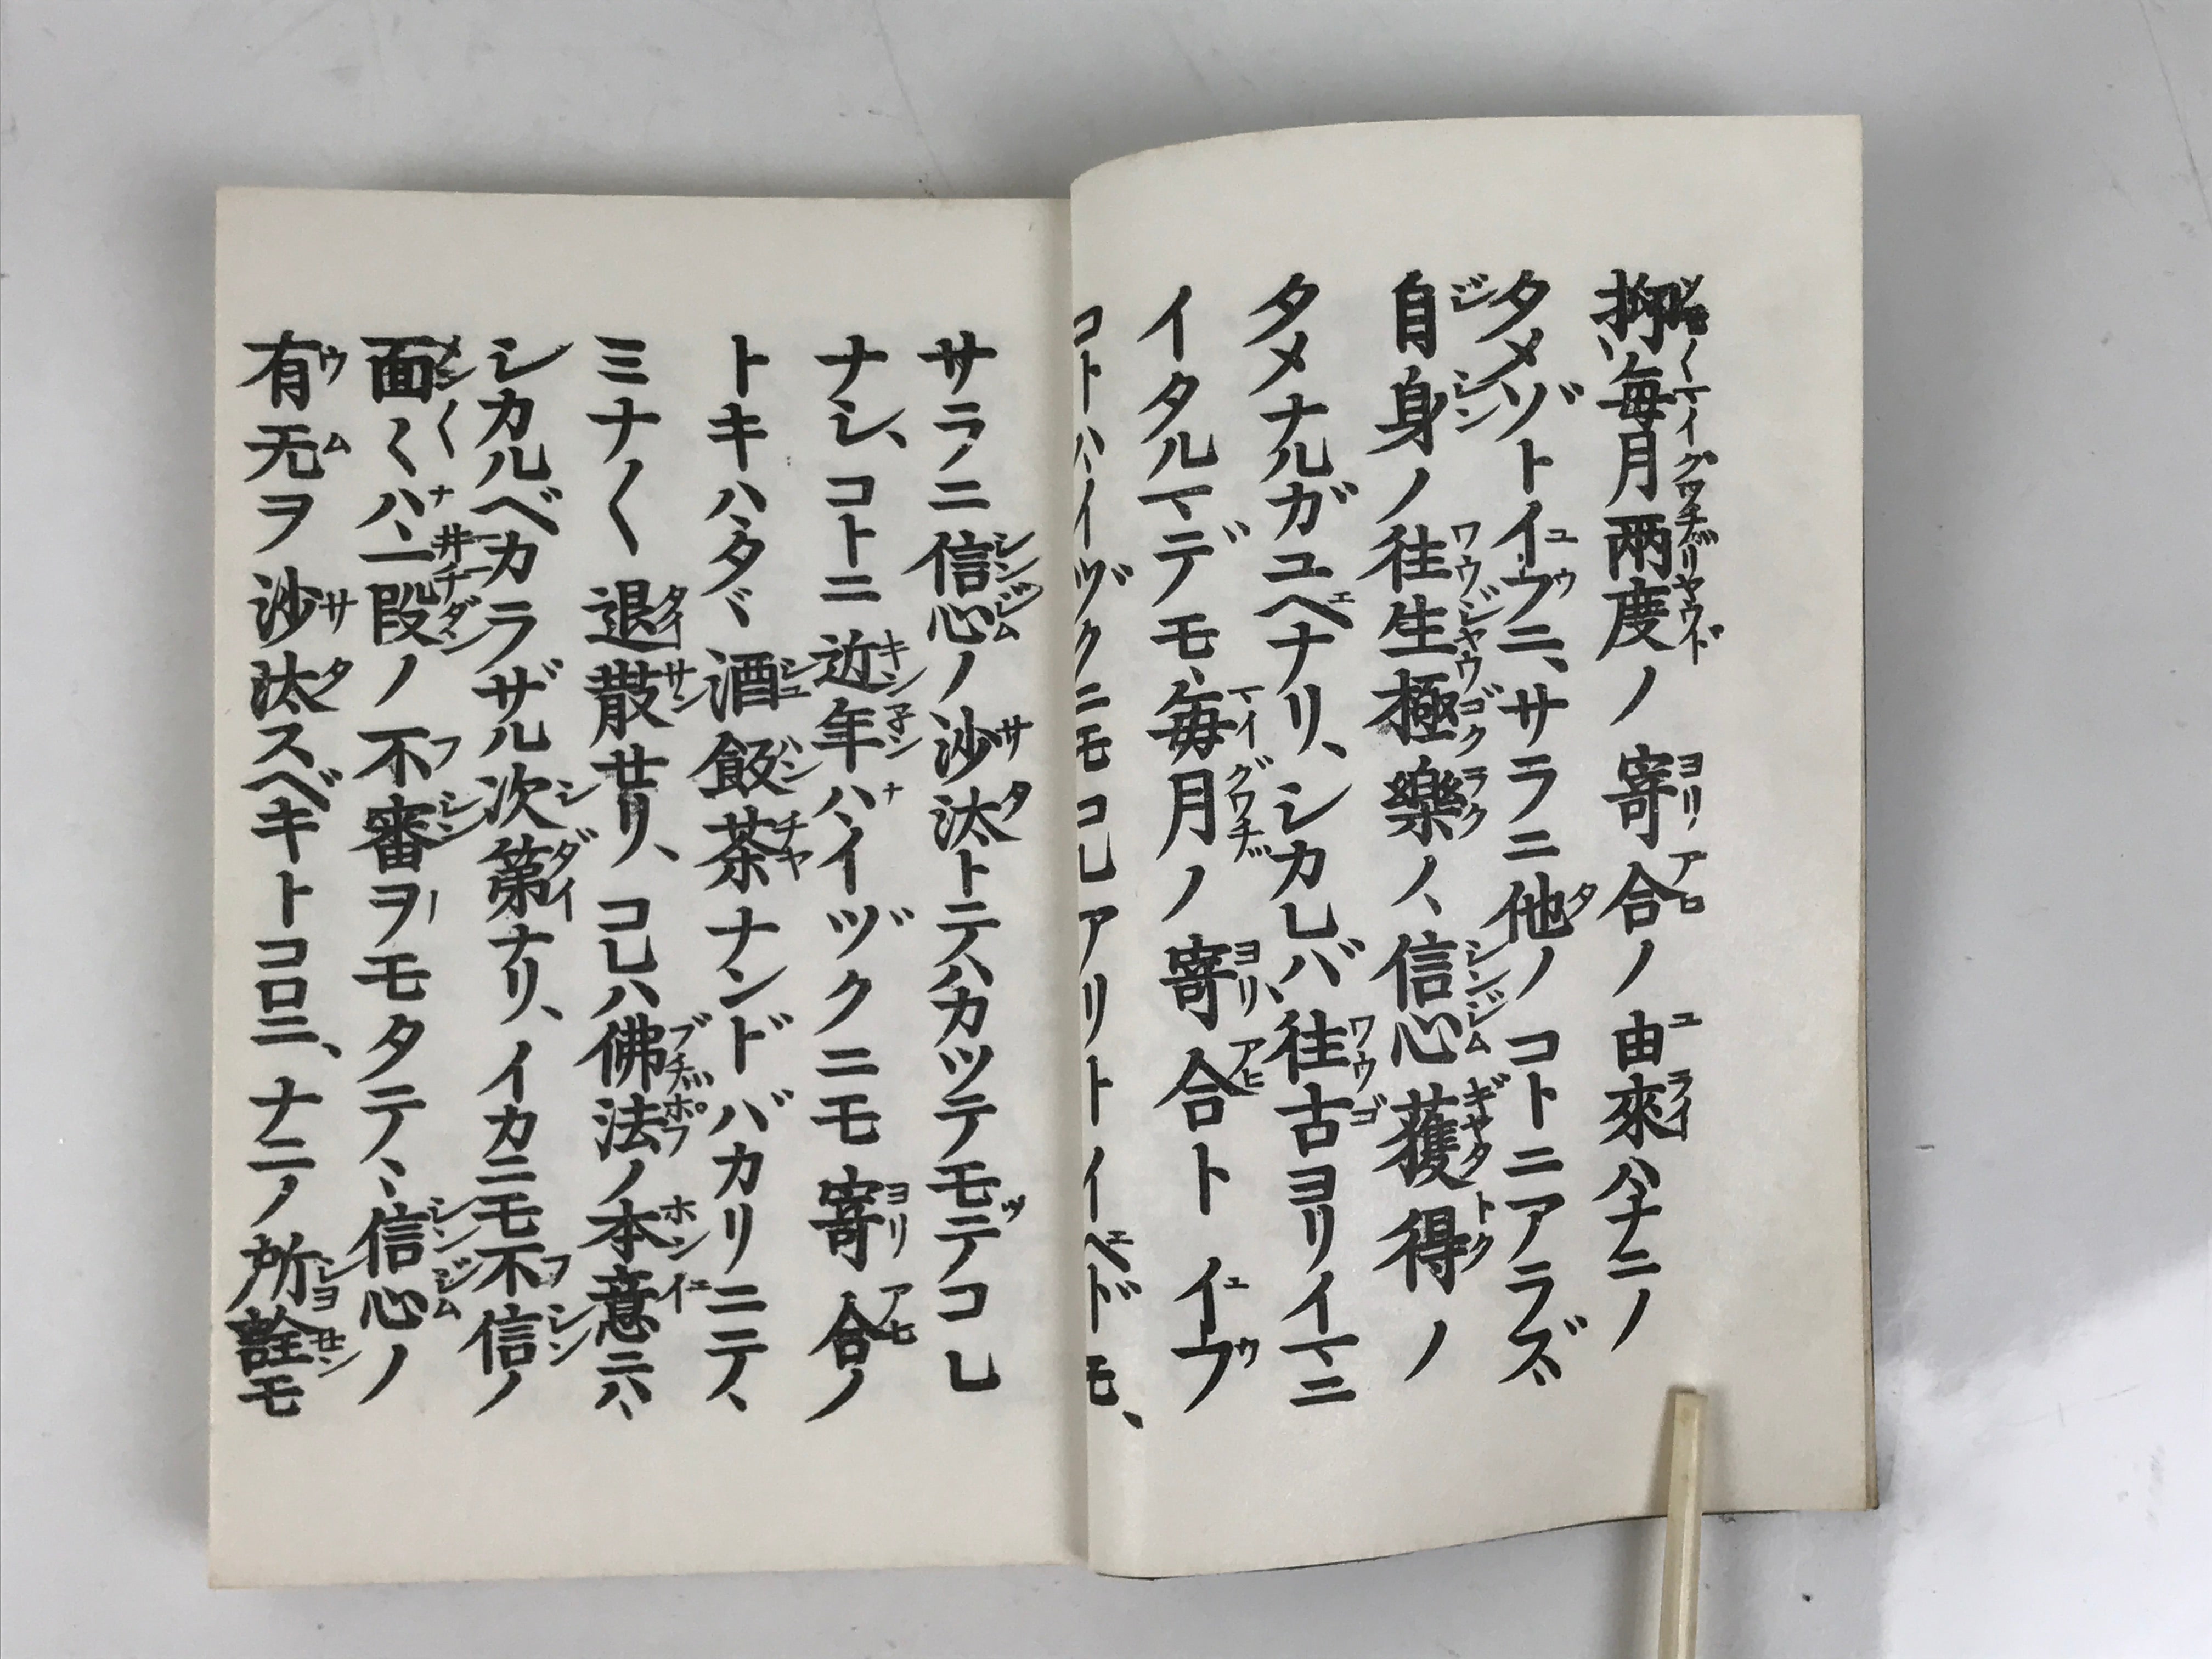 抑〻毎月兩度ノ寄合ノ由來ハナニノ
タメゾトイフニ、サラニ他ノコトニアラズ、
自身ノ往生極樂ノ、信心獲得ノ
タメナルガユヘナリ、シカレバ、往古ヨリイマニ
イタルマデモ、毎月ノ寄合トイフ
コトハ、イヅクニモコレアリトイヘドモ、
サラニ信心ノ沙汰トテハカツテモテコレ
ナシ、コトニ近年ハ、イヅクニモ寄合ノ
トキハ、タヾ酒飯茶ナンドバカリニテ、
ミナ〱退散セリ、コレハ佛法ノ本意ニハ、
シカルベカラザル次第ナリ、イカニモ不信ノ
面〱ハ、一段ノ不審ヲモタテヽ、信心ノ
有无ヲ沙汰スベキトコロニ、ナニノ所詮モ